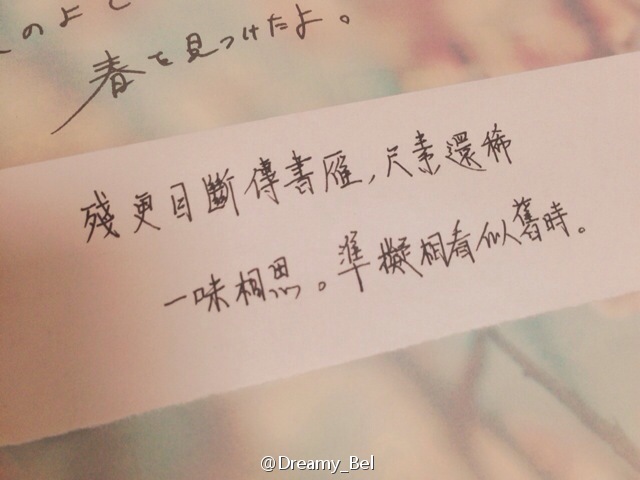 のよと
春を見つけたよ。
殘更目斷傳書雁,尺素還稀
一味相思。準擬相看似舊時。
@Dreamy_Bel